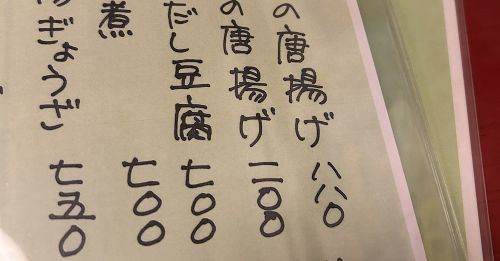 の唐揚げ 八八〇
の唐揚げ 一一〇〇
だし豆腐 七〇〇
煮 七〇〇
ぎょうざ 七五〇